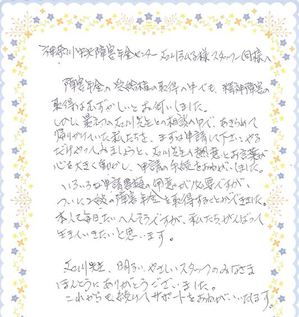 神奈川中央障害年金センター 石川 様 スタッフ 同様へ
障害年金の 受給権の取得の中でも、精神障害の
取得はむずかしいとお伺いしました。
しかし 最初の石川先生との相談の中で、あきらめて
いた私たちを、まずは申請して下さい やる
だけやってみましょうと、石川先生の熱意とお言葉が
心を大きく動かし、申請の手続をおねがいしました。
いろいろな申請書類の用意が必要ですが、
ついに の障害年金を取得することができました。
本人で毎日たいへんそうですが、私たちがんばって
生きていきたいと思います。
石川先生、明るいやさしいスタッフのみなさま
ほんとうにありがとうございました。
これからも続けてサポートをおねがいいたします。